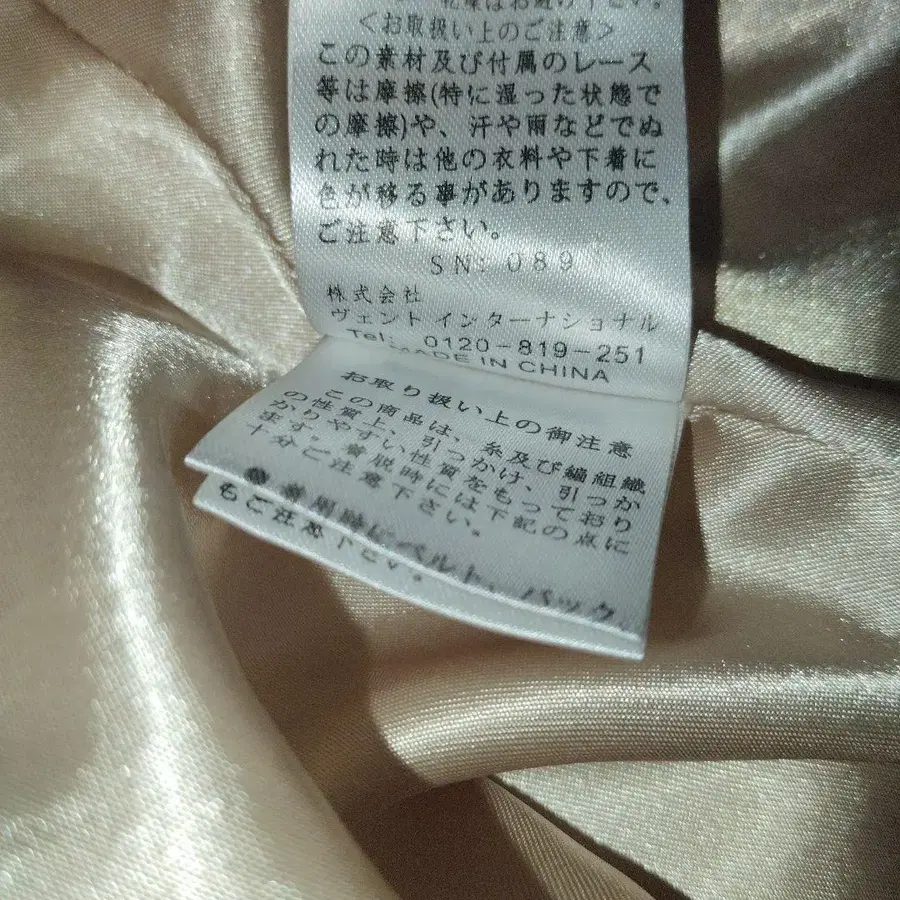 乾燥はお避け下さい。
<お取扱い上のご注意>
この素材及び付属のレース
等は摩擦(特に湿った状態で
の摩擦)や、汗や雨などでぬ
れた時は他の衣料や下着に
色が移る事がありますので、
ご注意下さい。
SN: 089
株式会社
ヴェント インターナショナル
Tel: 0120-819-251
MADE IN CHINA
お取り扱い上の御注意
この商品は、糸及び編組織
の性質上、引っかけ、引っか
かりやすい性質をもっており
ます。着脱時には下記の点に
十分ご注意下さい。
着用時にベルト、バック
もご注意下さい。